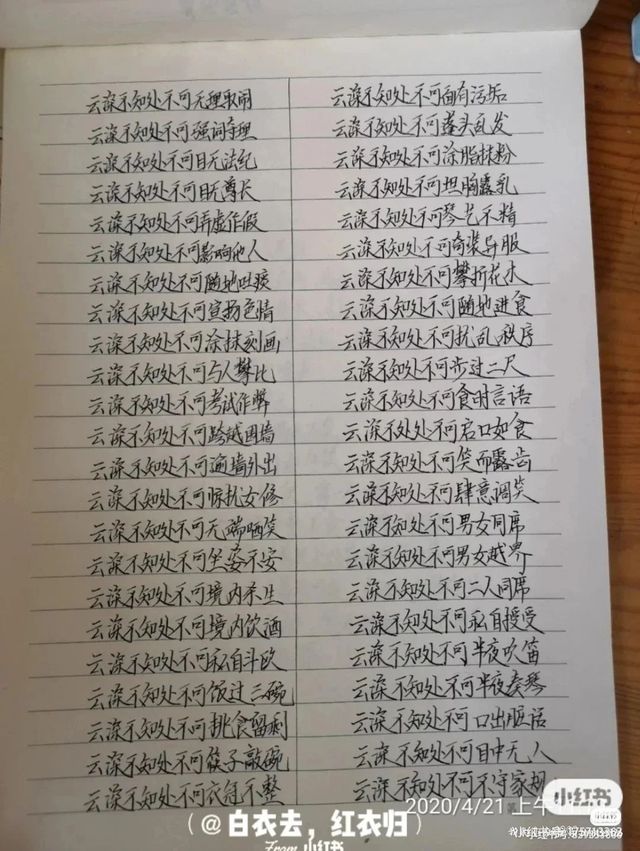 云深不知处不可无理取闹
云深不知处不可强词夺理
云深不知处不可目无法纪
云深不知处不可目无尊长
云深不知处不可弄虚作假
云深不知处不可影响他人
云深不知处不可随地吐痰
云深不知处不可宣扬色情
云深不知处不可涂抹刻画
云深不知处不可与人攀比
云深不知处不可考试作弊
云深不知处不可跨越围墙
云深不知处不可遍墙外出
云深不知处不可惊扰女修
云深不知处不可无端哂笑
云深不知处不可坐姿不安
云深不知处不可境内杀生
云深不知处不可境内饮酒
云深不知处不可私自斗殴
云深不知处不可饭过三碗
云深不知处不可挑食留剩
云深不知处不可筷子敲碗
云深不知处不可衣冠不整
云深不知处不可面有污垢
云深不知处不可蓬头乱发
云深不知处不可涂脂抹粉
云深不知处不可坦胸露乳
云深不知处不可琴艺不精
云深不知处不可奇装异服
云深不知处不可攀折花木
云深不知处不可随地进食
云深不知处不可扰乱秩序
云深不知处不可步过二尺
云深不知处不可食时言语
云深处处不可启口如食
云深不知处不可笑而露齿
云深不知处不可肆意调笑
云深不知处不可男女同席
云深不知处不可男女越界
云深不知处不可二人同席
云深不知处不可私自授受
云深不知处不可半夜吹笛
云深不知处不可半夜奏琴
云深不知处不可口出脏话
云深不知处不可目中无人
云深不知处不可不守家规
2020/4/21 上午
小红书
(@白衣去，红衣归
From 小红书